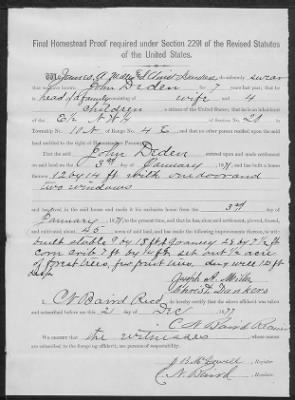 Final Homestead Proof required under Section 2291 of the Revised Statutes
of the United States.
We James A Mills & Chris Dankers do solemnly swear
that have known John Deden for 7 years last past; that he
head of a family consisting of wife and 4
children a citizen of the United States; that he is an inhabitant
of the E½ N W¼ of Section No. 20
in Township No. 10 N of Range No. 4 E, and that no other person resided upon the said
land entitled to the right of Homestead or Pre-emption.
That the said John Deden entered upon and made settlement
on said land on the 3rd day of January, 1871 and has built a house thereon
12 by 14 ft with one door and
two windows
and has lived in the said house and made it his exclusive home from the 3rd day of
January, 1871, to the present time, and that he has, since said settlement, plowed, fenced,
and cultivated about 45 acres of said land, and has made the following improvements thereon, to wit:
built stable 9 by 15 ft Granary 28 by 7½ ft
corn crib 7 ft by 14 ft set out ½ acre
of forest trees, five fruit trees, dug well 12 ft
deep
Joseph A. Mills
Chris T. Dankers
I, C N Baird Recd do hereby certify that the above affidavit was
subscribed before me this 21 day of Dec 1877
C N Baird Receiver
We certify that the witnesses whose names are
subscribed to the foregoing affidavit, are persons of respectability.
J B McDowell, Register.
C. N. Baird, Receiver.